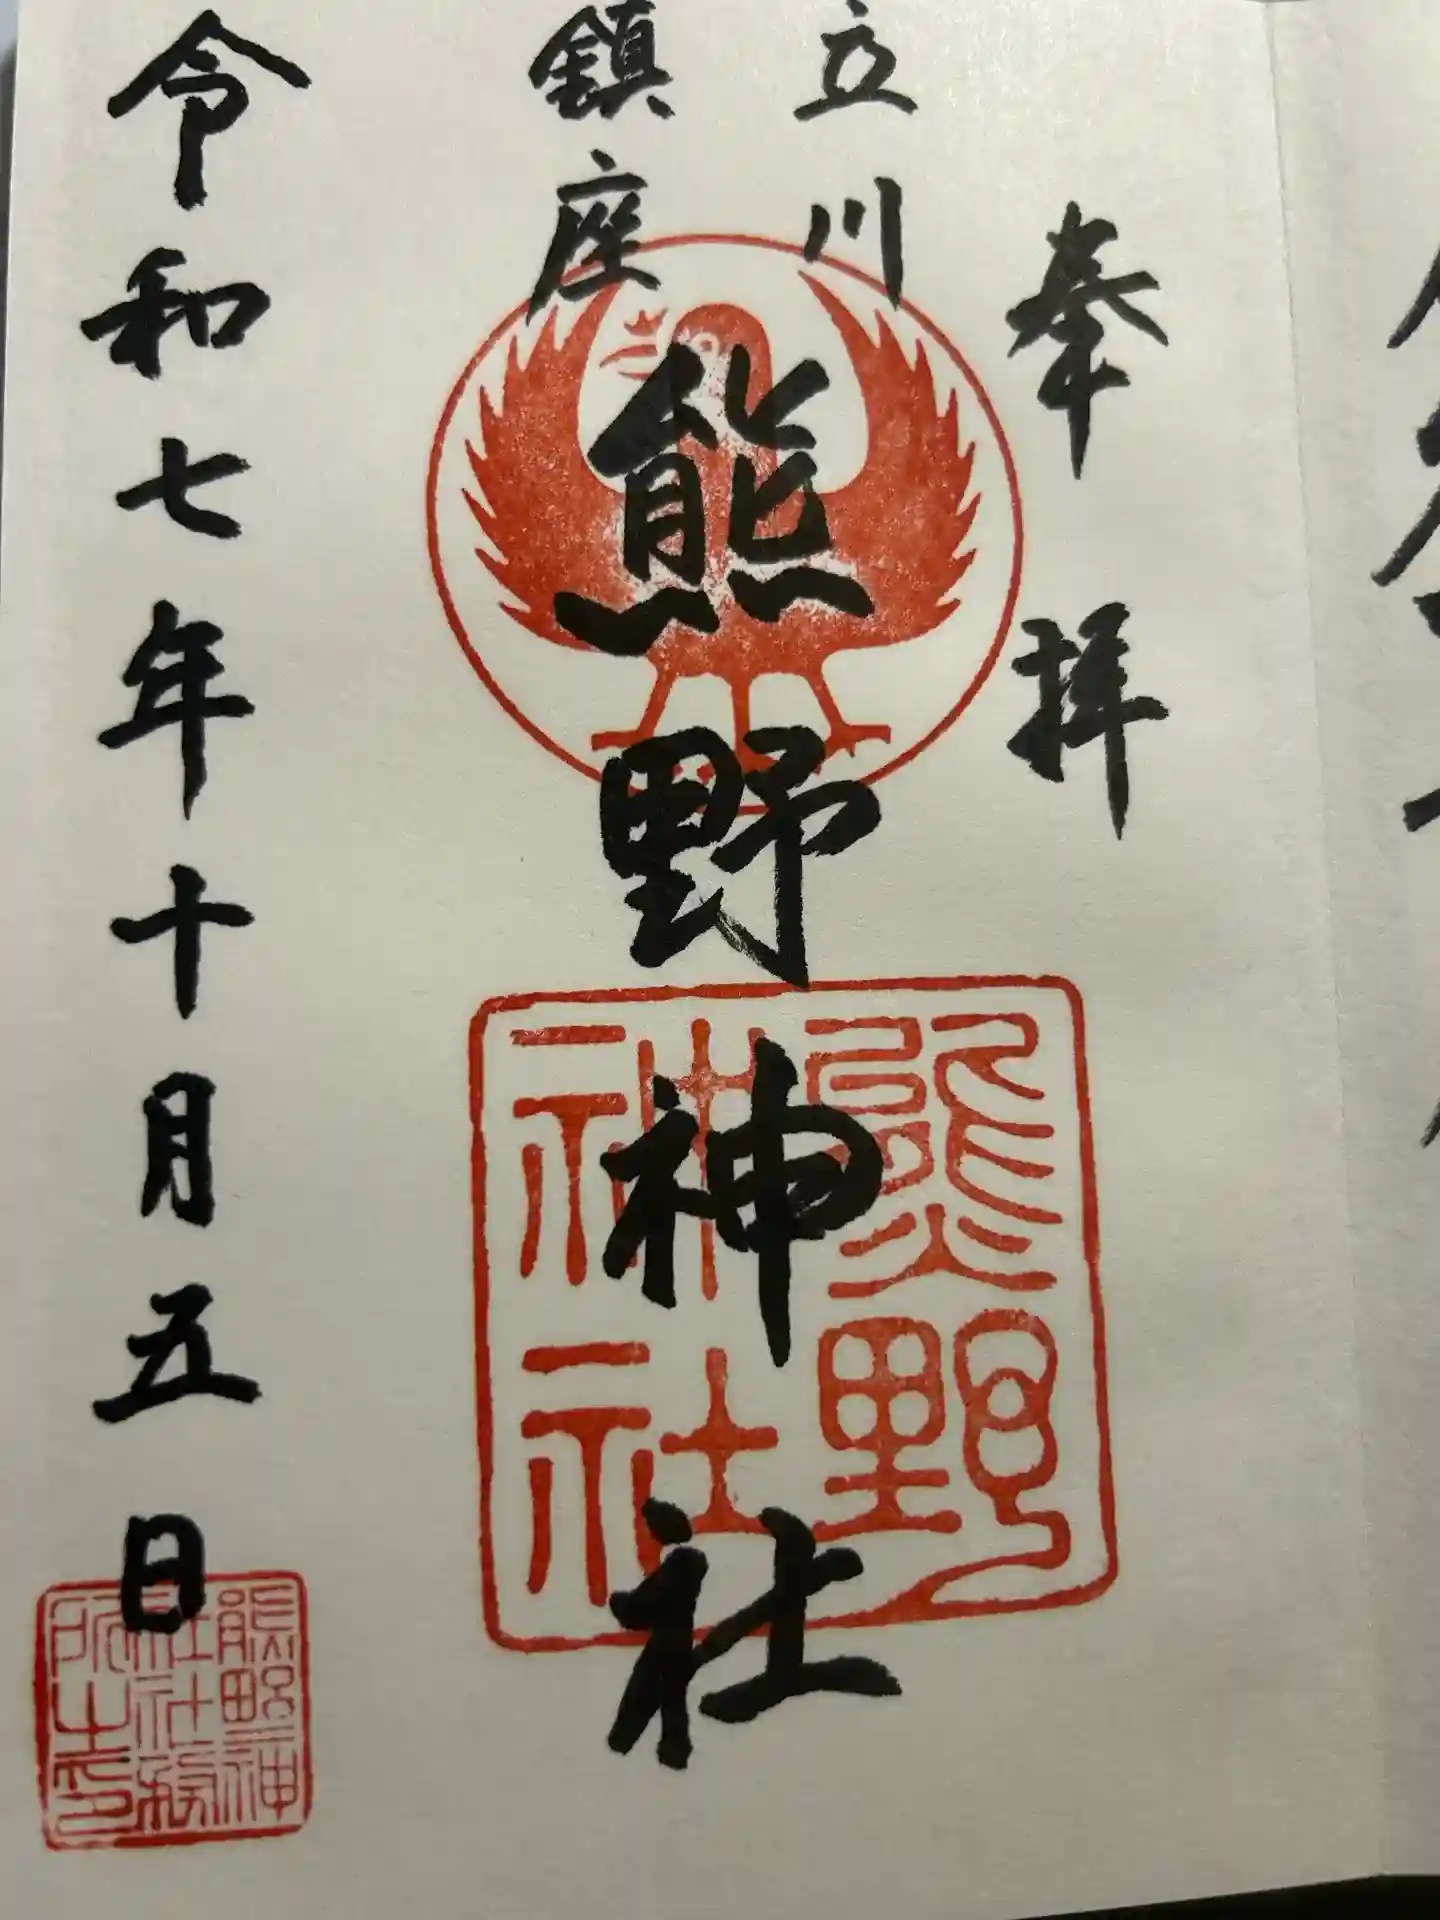 奉拝
立川
鎮座
熊野神社
熊野
神社
令和七年十月五日
熊野神
社社務
所之印